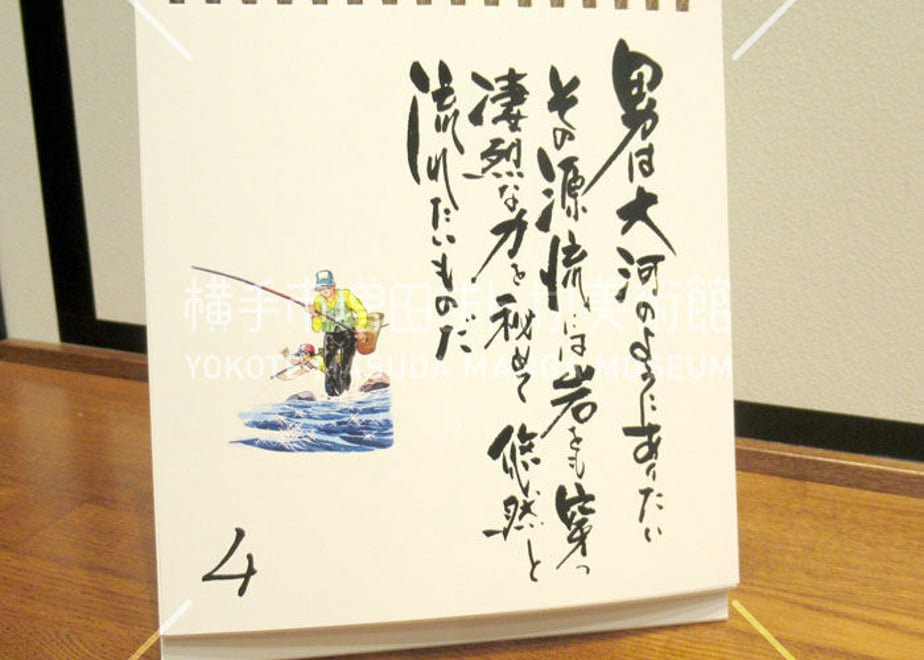 男は大河のようにありたい
その源流には岩をも穿つ
凄烈な力を秘めて 悠然と
流れたいものだ
4
横手市増田まんが美術館
YOKOTE MASUDA MANGA MUSEUM